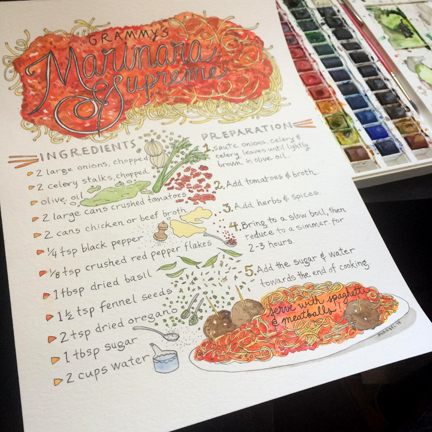 GRAMMY'S
Marinara
Supreme
INGREDIENTS
2 large onions, chopped
2 celery stalks, chopped
olive oil
2 large cans crushed tomatoes
2 cans chicken or beef broth
1/4 tsp black pepper
1/8 tsp crushed red pepper flakes
1 tbsp dried basil
1 1/2 tsp fennel seeds
2 tsp dried oregano
1 tbsp sugar
2 cups water
PREPARATION
1. Saute onions, celery &
celery leaves until lightly
brown in olive oil.
2. Add tomatoes & broth.
3. Add herbs & spices.
4. Bring to a slow boil, then
reduce to a simmer for
2-3 hours.
5. Add the sugar & water
towards the end of cooking.
serve with spaghetti
& meatballs!